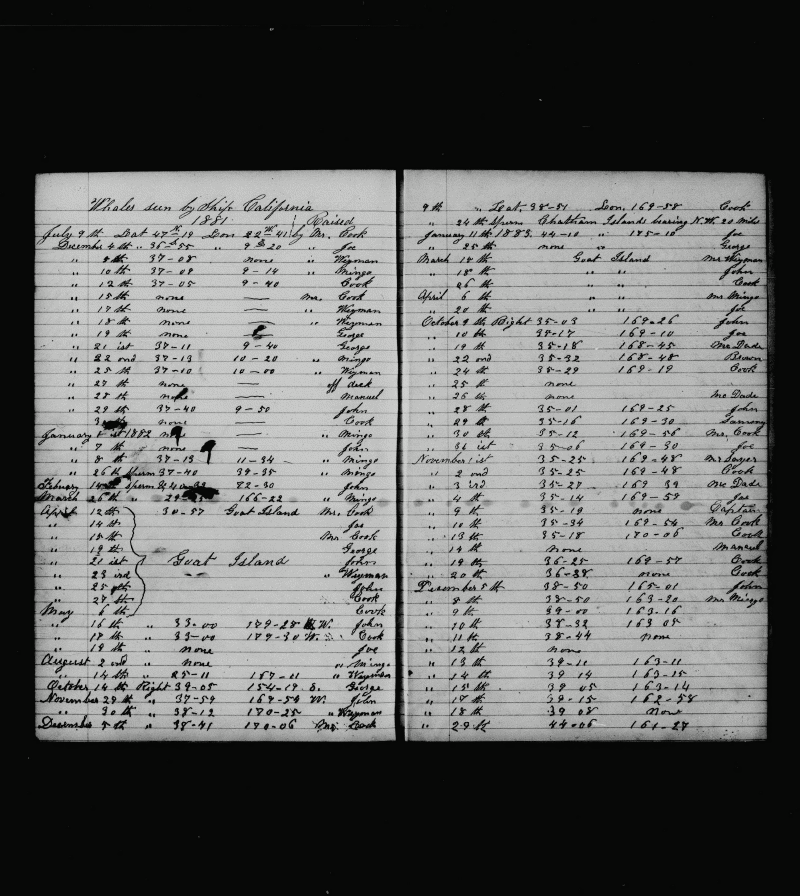 Whales seen by Ship California
1881. Raised
July 9th Lat 47-19 Lon 22-41 by Mr. Cook
December 4th " 36-55 9-20 " Joe
" 8th 37-08 none " Weyman
" 10th 37-08 9-14 " Mingo
" 12th 37-05 9-40 Cook
" 15th none — Mr. Cook
" 17th none — " Weyman
" 18th none — " Weyman
" 19th none George
" 21 ist 37-11 9-40 George
" 22 ond 37-13 10-20 " Mingo
" 25th 37-10 10-00 " Weyman
" 27th none — off deck
" 28th none — Manuel
" 29th 37-40 9-50 John
" none — Cook
January 1 ist 1882 none — " Mingo
" 7th none — John
" 8th 37-13 11-34 " Mingo
" 26th Sperm 37-40 39-35 " Mingo
Febuary Sperm 72-30 John
March 26th " 29 166-22 " Mingo
April 12th 30-57 Goat Island Mr. Cook
" 14th Joe
" 15th Mr Cook
" 19th George
" 21 ist Goat Island John
" 23 ird " Weyman
" 25th John
" 27th Cook
May 6th Cook
" 16th " 33-00 179-28 W. John
" 17th " 33-00 179-30 W. Cook
" 19th " none Joe
August 2 ond " none " Mingo
" 14th " 25-11 167-01 " Weyman
October 14th Right 39-05 154-19 E. George
November 29th " 37-59 169-54 W. John
" 30th " 38-12 170-25 " Weyman
December 5th " 38-41 170-06 Mr. Cook
9th " Lat. 38-51 Lon. 169-58 Cook
" 24th Sperm Chatham Islands bearing N.W. 20 miles
January 11th 1883. 44-10 " 175-10 Joe
" 25th none " George
March 14th Goat Island Mr Weyman
" 18th " " John
" 26th Cook
April 6th " " Mr Mingo
" 20th " " Joe
October 9th Right 35-03 169-26 John
" 10th 35-17 169-10 Joe
" 19th 35-18 168-45 Mc Dade
" 22 ond 35-32 168-48 Brown
" 24th 35-29 169-19 Cook
" 25th none
" 26th none Mc Dade
" 28th 35-01 169-25 John
" 29th 35-16 169-30
" 30th 35-12 169-56 Mr. Cook
" 31 ist 35-06 169-30 Joe
November 1 ist 35-25 169-48 Mr Sayer
" 2 ond 35-25 169-48 Cook
" 3 ird 35-27 169 39 Mc Dade
" 4th 35-14 169-59 Joe
" 9th 35-19 none Captain
" 10th 35-34 169-54 Mr. Cook
" 13th 35-18 170-06 Cook
" 14th none Manuel
" 19th 36-25 169-57 Cook
" 20th 36-28 none Cook
December 5th 38-50 165-01 John
" 8th 38-50 163-20 Mr Mingo
" 9th 39-00 163-16
" 10th 38-32 163 05
" 11th 38-44 none
" 12th none
" 13th 39-11 163-11
" 14th 39 14 163-15
" 15th 39 05 163-14
" 17th 39-15 162-58
" 18th 39 08 none
" 29th 44-06 161-27